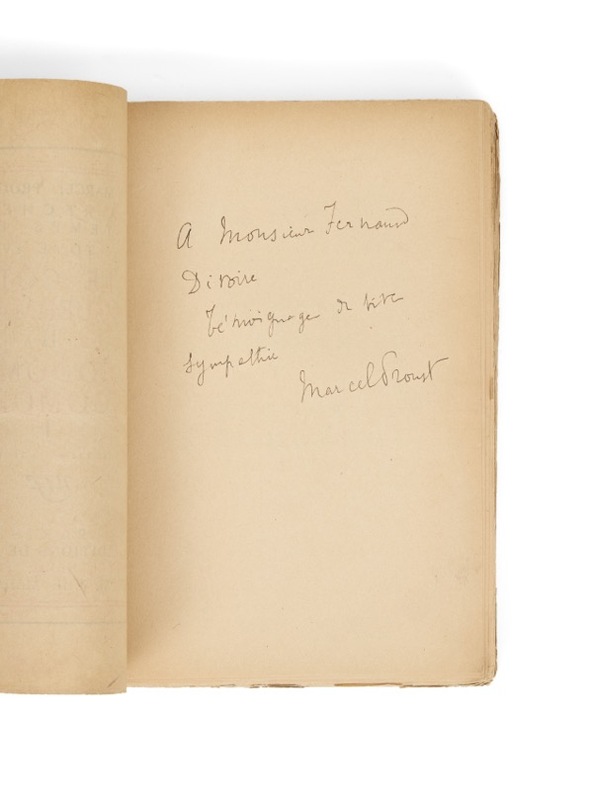 A Monsieur Fernand
Divoire
Témoignage de vive
sympathie
Marcel Proust